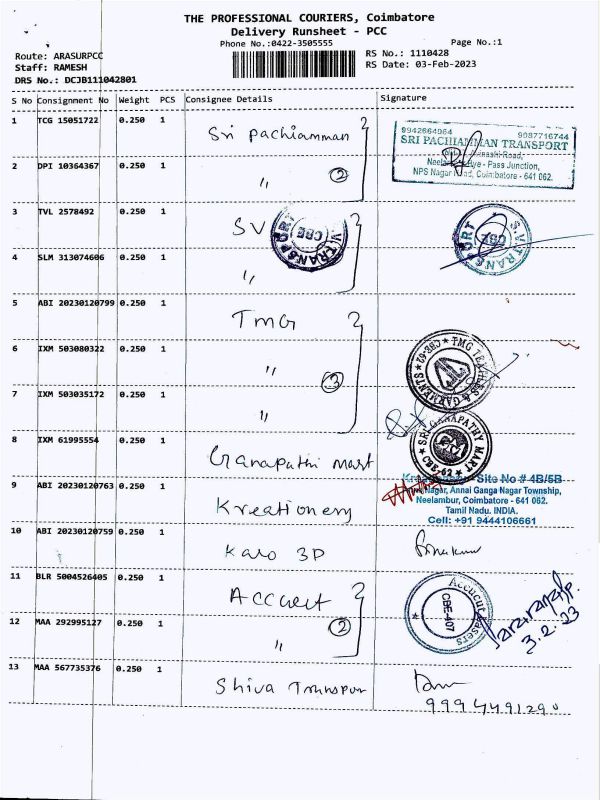 THE PROFESSIONAL COURIERS, Coimbatore
Delivery Runsheet - PCC
Phone No.:0422-3505555
Page No.:1
Route: ARASURPCC
Staff: RAMESH
DRS No.: DCJB111042801
RS No.: 1110428
RS Date: 03-Feb-2023
S No Consignment No Weight PCS Consignee Details Signature
1 TCG 15051722 0.250 1 Sri pachiamman
9942664964 9087716744
SRI PACHIAMMAN TRANSPORT
Pass Junction,
NPS Nagar Road, Coimbatore - 641 062.
2 DPI 10364367 0.250 1 " 2
3 TVL 2578492 0.250 1 SV
S.V. TRANSPORT
CBE
S.V. TRANSPORT
CBE
4 SLM 313074606 0.250 1 "
5 ABI 20230120799 0.250 1 TMG
6 IXM 503080322 0.250 1 " 3
7 IXM 503035172 0.250 1 "
TMG TEXTILES & GARMENTS ★ CBE-62 ★
8 IXM 61995554 0.250 1 Ganapathi mart
SRI GANAPATHY MART
★ CBE-62 ★
9 ABI 20230120763 0.250 1 Kreationery
Site No # 4B/5B
Nagar, Annai Ganga Nagar Township,
Neelambur, Coimbatore - 641 062.
Tamil Nadu. INDIA.
Cell: +91 9444106661
10 ABI 20230120759 0.250 1 Karo 3D
11 BLR 5004526405 0.250 1 Accucut
Accucut Lasers
CBE-407
3.2.23
12 MAA 292995127 0.250 1 " 2
13 MAA 567735376 0.250 1 Shiva Transport
9994491290